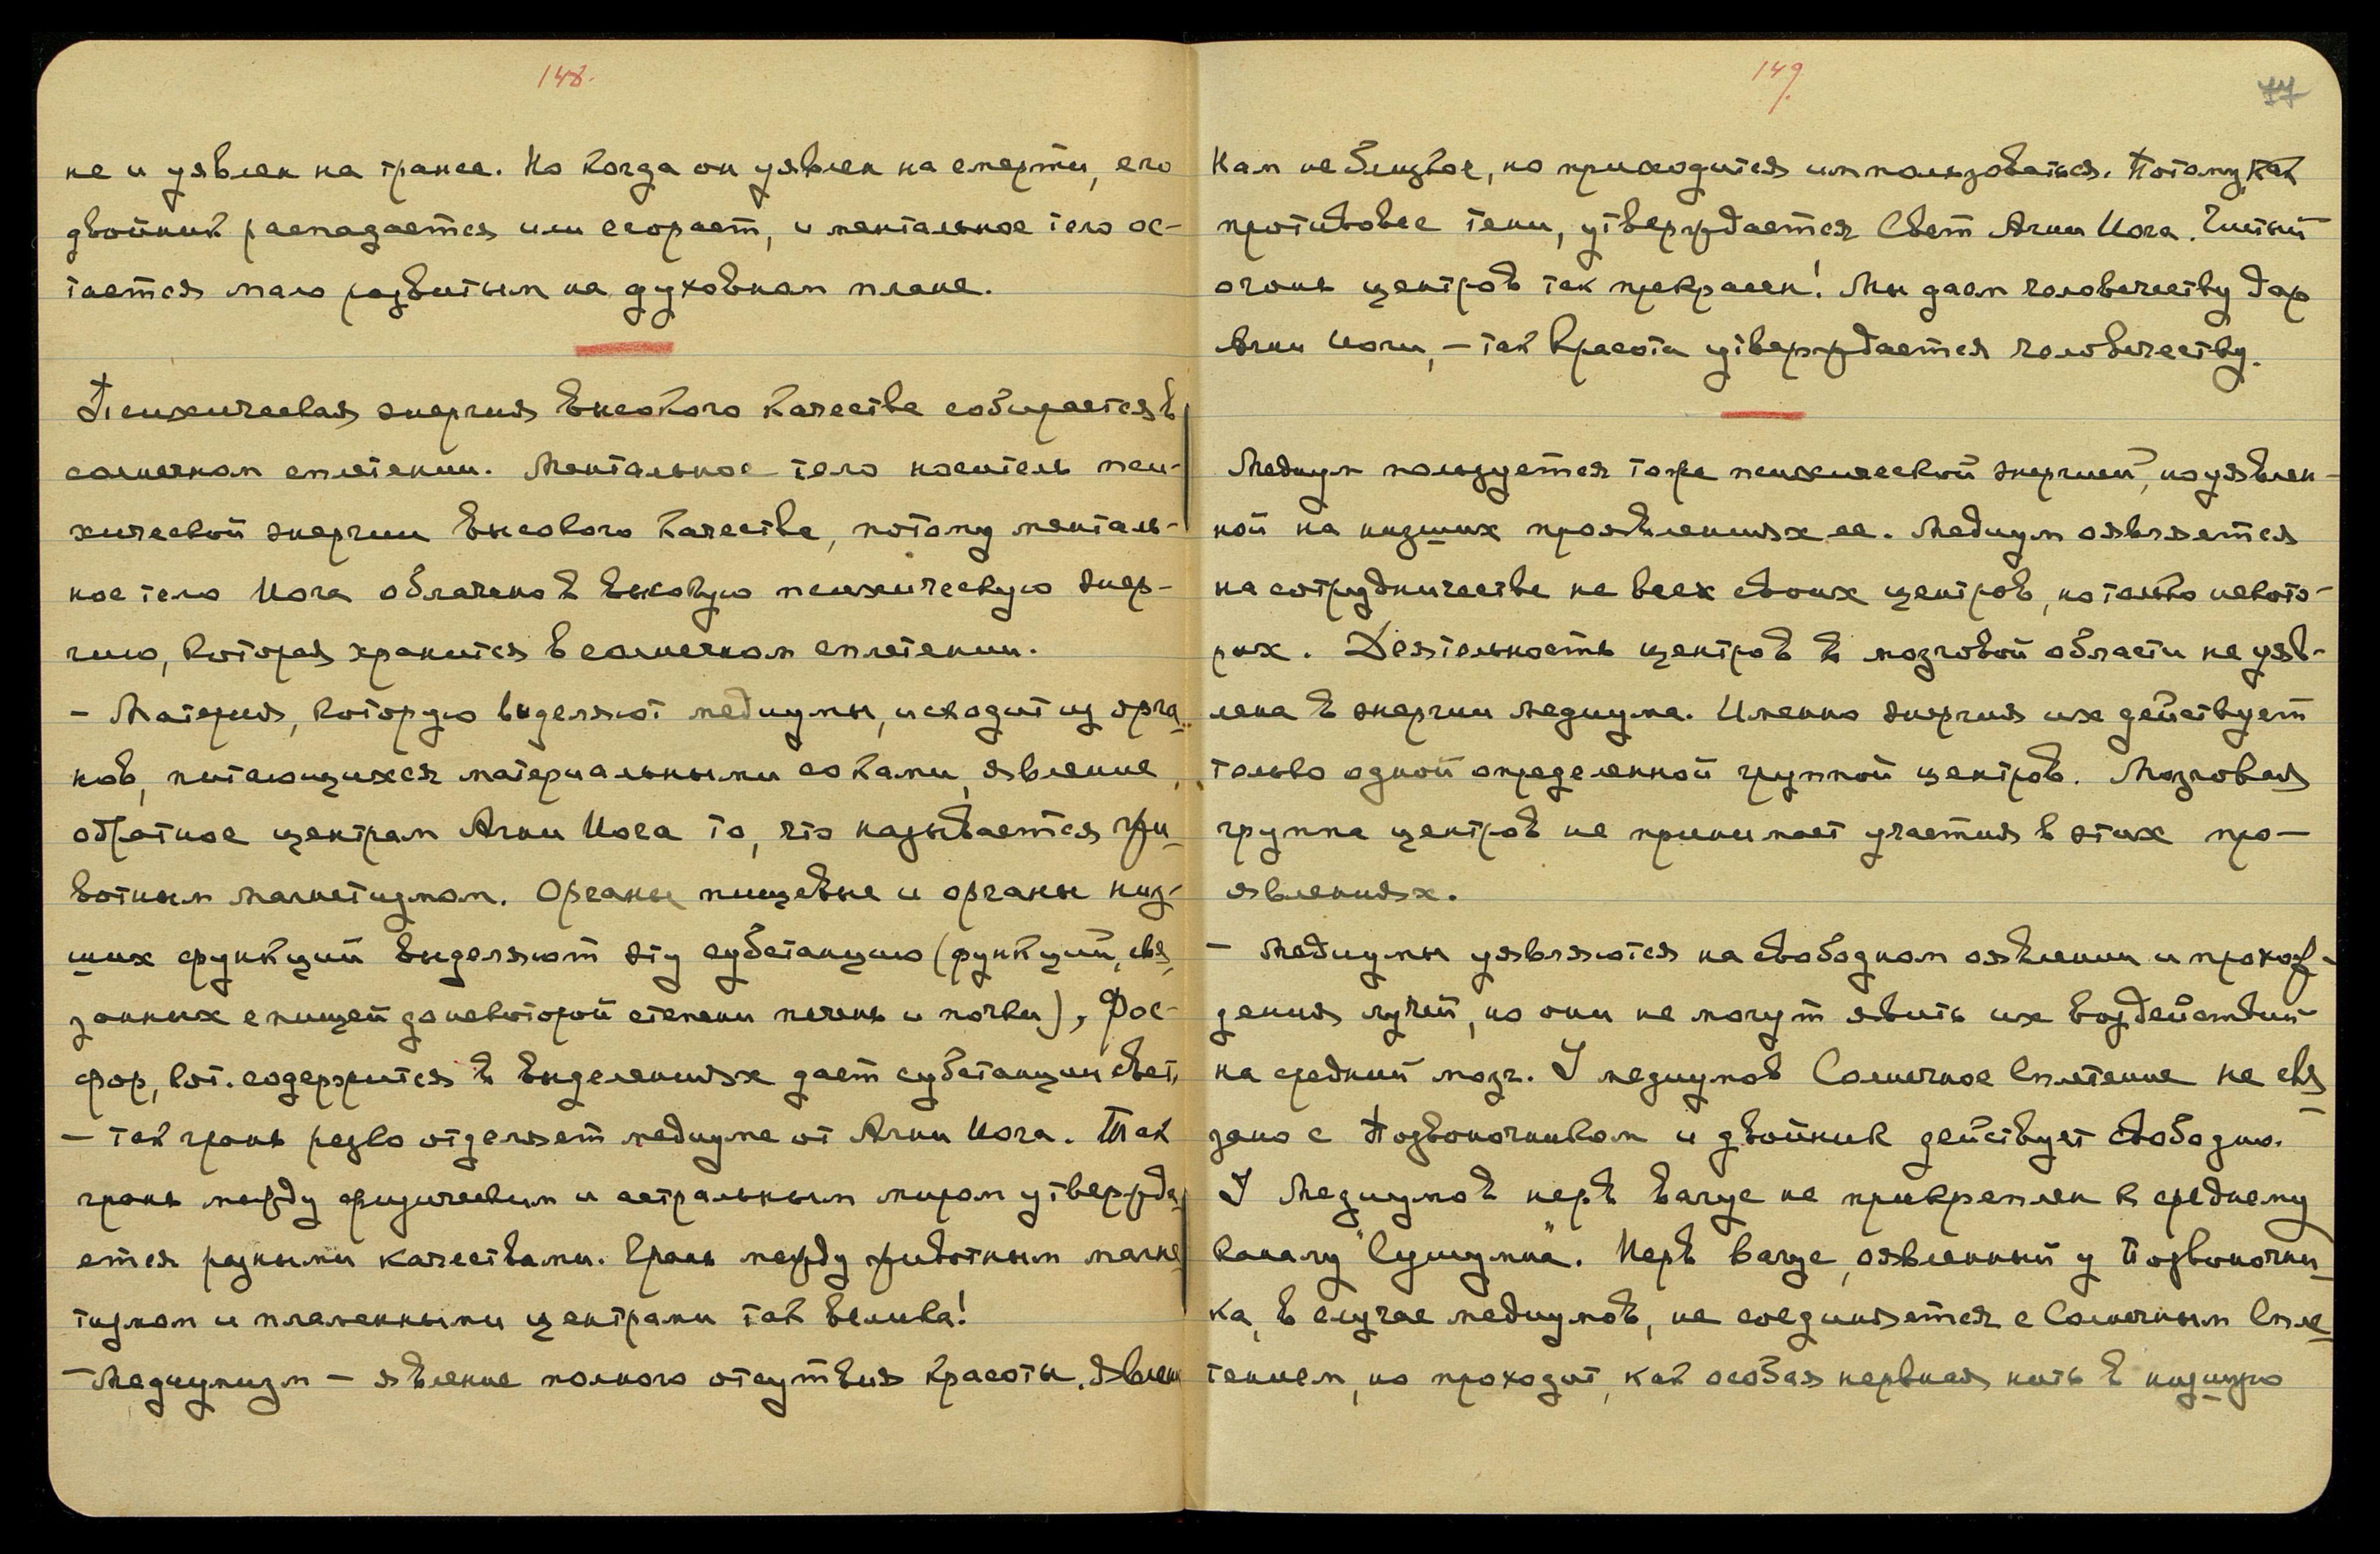 148.
не и уявлен на трансе. Но когда он уявлен на смерти, его
двойник распадается или сгорает, и ментальное тело ос-
тается мало развитым на духовном плане.
Психическая энергия высокого качества собирается в
солнечном сплетении. Ментальное тело носитель пси-
хической энергии высокого качества, потому менталь-
ное тело Иога облачено в высокую психическую энер-
гию, которая хранится в солнечном сплетении.
– Материя, которую выделяют медиумы, исходит из орга-
нов, питающихся материальными соками, явление,
обратное центрам Агни Иога то, что называется жи-
вотным магнетизмом. Органы пищевые и органы низ-
ших функций выделяют эту субстанцию (функций, свя-
занных с пищей до некоторой степени печень и почки), Фос-
фор, кот. содержится в выделениях дает субстанции свет,
– так грань резко отделяет медиума от Агни Иога. Так
грань между физическим и астральным миром утвержда-
ется разными качествами. Грань между животным магне-
тизмом и пламенными центрами так велика!
– Медиумизм – явление полного отсутвия красоты. Явлен
149.
77
Нам не близкое, но приходится им пользоваться. Потому, как
противовес тени, утверждается Свет Агни Иога. Чистый
огонь центров так прекрасен! Мы даем человечеству дар
Агни Иоги, – так Красота утверждается человечеству.
Медиум пользуется тоже психической энергией, но уявлен-
ной на низших проявлениях ее. Медиум оявляется
на сотрудничестве не всех своих центров, но только некото-
рых. Деятельность центров в мозговой области не уяв-
лена в энергии медиума. Именно энергия их действует
только одной определенной группой центров. Мозговая
группа центров не принимает участия в этих про-
явлениях.
– Медиумы уявляются на свободном оявлении и прохож-
дения лучей, но они не могут явить их воздействий
на средний мозг. У медиумов Солнечное Сплетение не свя-
зано с Позвоночником и двойник действует свободно.
У Медиумов нерв вагус не прикреплен к среднему
каналу "Сушумна". Нерв вагус, оявленный у Позвоночни-
ка, в случае медиумов, не соединяется с Солнечным Спле-
тением, но проходит, как особая нервная нить в низшую